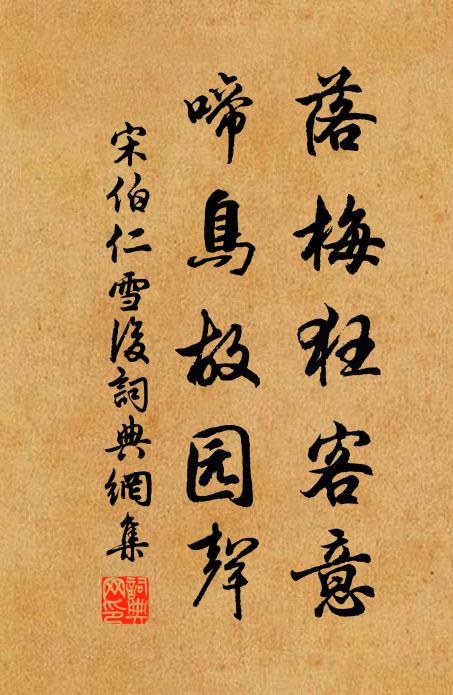 落梅狂客意
啼鳥故园聲
宋伯仁雪後詞典網集
詞典網印